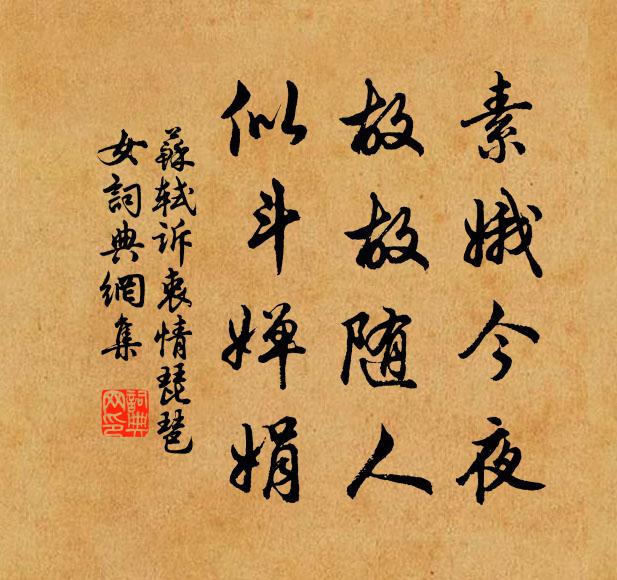 素娥今夜
故故随人
似斗婵娟
蘇軾訴衷情琵琶
女詞典網集
詞典
网印